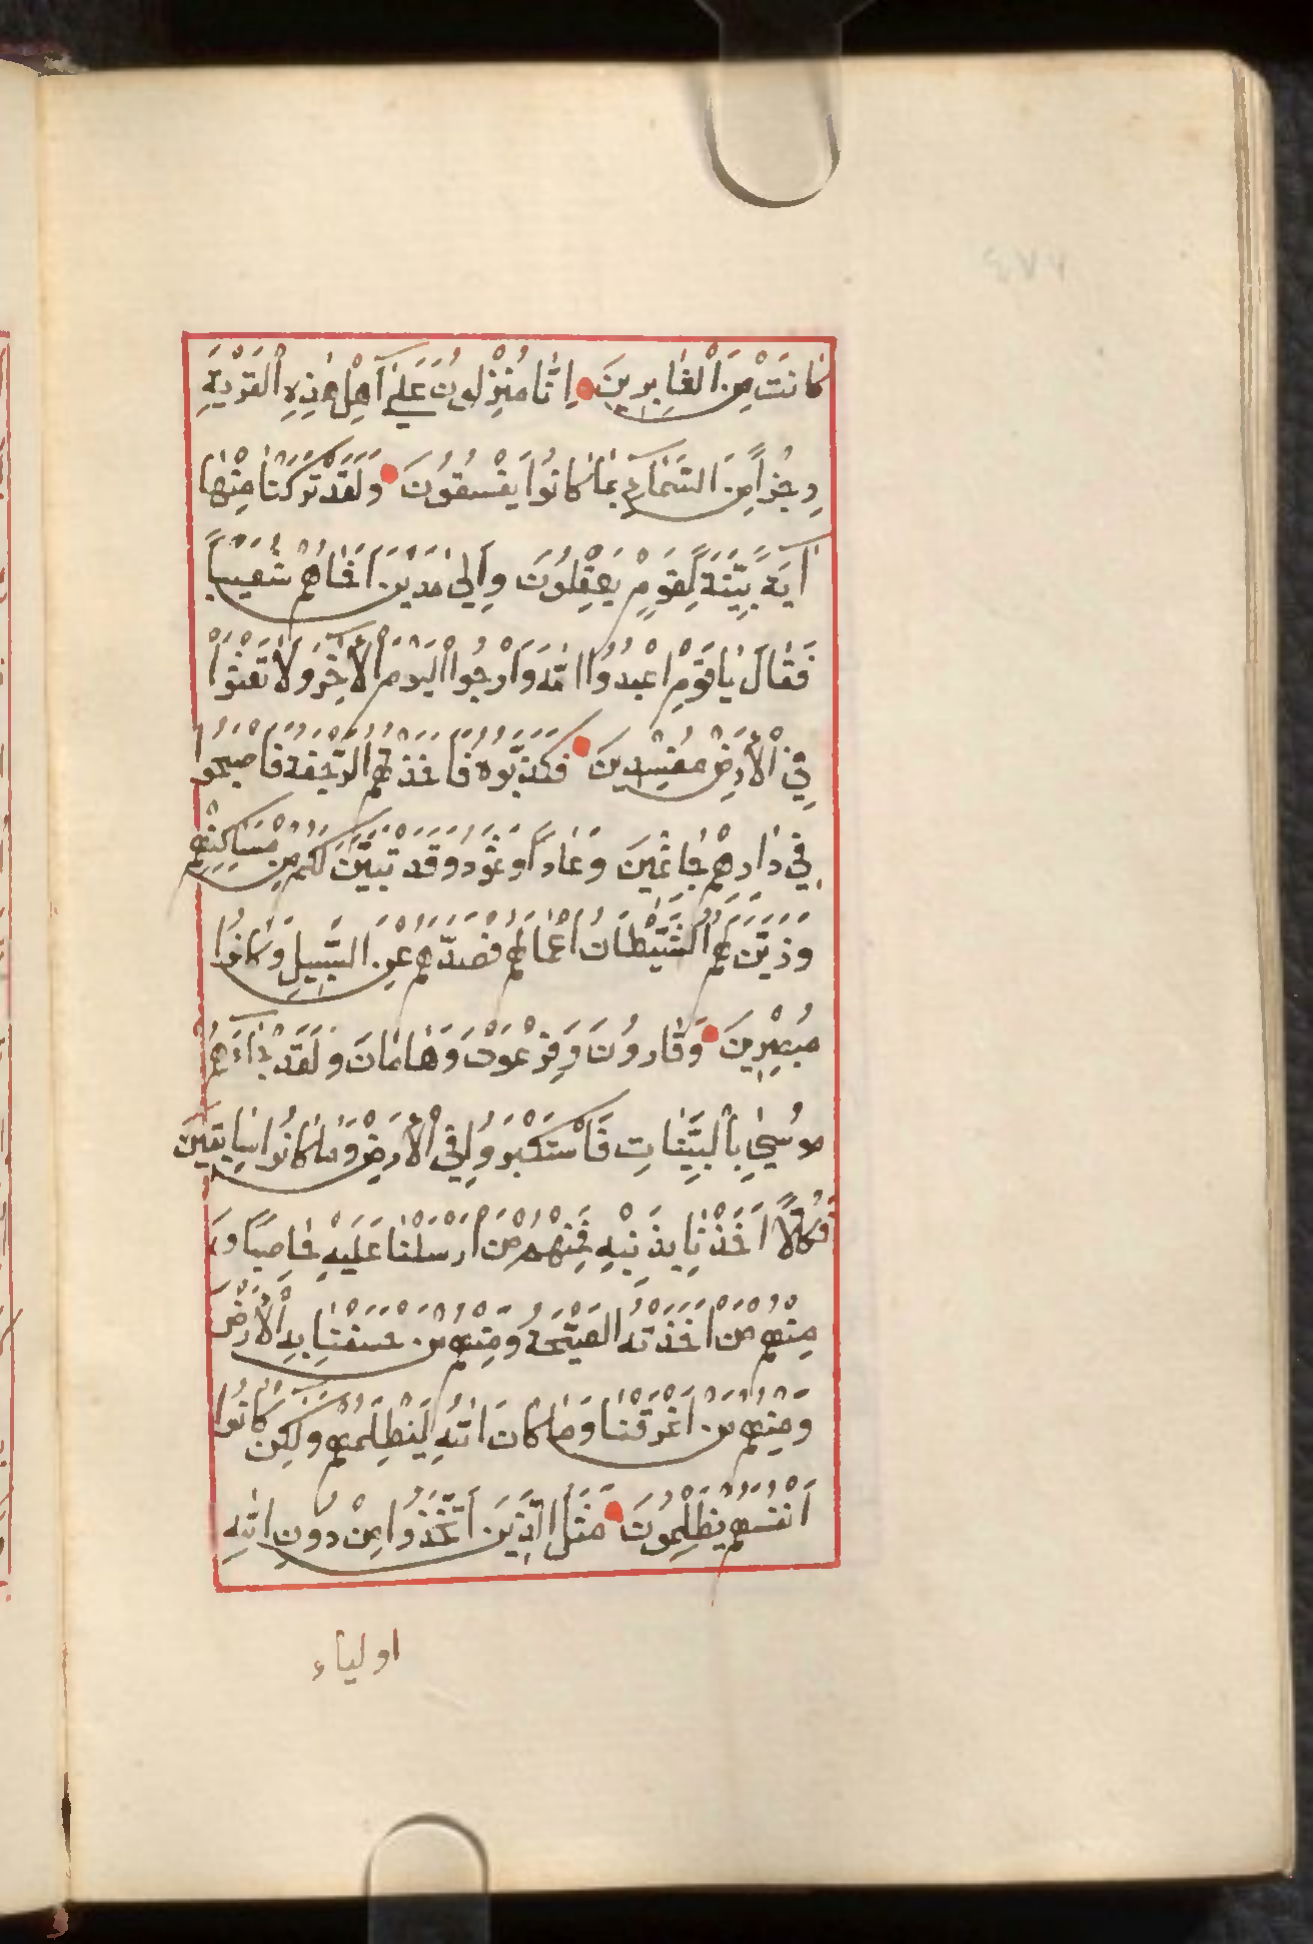 كَانَتْ مِنَ الْغَابِرِينَ اِنَّا مُنْزِلُونَ عَلَىٰ اَهْلِ هٰذِهِ الْقَرْيَةِ
رِجْزاً مِنَ السَّمَاءِ بِمَا كَانُوا يَفْسُقُونَ وَلَقَدْ تَرَكْنَا مِنْهَا
اٰيَةً بَيِّنَةً لِقَوْمٍ يَعْقِلُونَ وَاِلٰى مَدْيَنَ اَخَاهُمْ شُعَيْباً
فَقَالَ يَا قَوْمِ اعْبُدُوا اللهَ وَارْجُوا الْيَوْمَ الْاٰخِرَ وَلَا تَعْثَوْا
فِي الْاَرْضِ مُفْسِدِينَ فَكَذَّبُوهُ فَاَخَذَتْهُمُ الرَّجْفَةُ فَاَصْبَحُوا
فِي دَارِهِمْ جَاثِمِينَ وَعَاداً وَثَمُودَ وَقَدْ تَبَيَّنَ لَكُمْ مِنْ مَسَاكِنِهِمْ
وَزَيَّنَ لَهُمُ الشَّيْطَانُ اَعْمَالَهُمْ فَصَدَّهُمْ عَنِ السَّبِيلِ وَكَانُوا
مُسْتَبْصِرِينَ وَقَارُونَ وَفِرْعَوْنَ وَهَامَانَ وَلَقَدْ جَاءَهُمْ
مُوسٰى بِالْبَيِّنَاتِ فَاسْتَكْبَرُوا فِي الْاَرْضِ وَمَا كَانُوا سَابِقِينَ
فَكُلّاً اَخَذْنَا بِذَنْبِهِ فَمِنْهُمْ مَنْ اَرْسَلْنَا عَلَيْهِ حَاصِباً وَ
مِنْهُمْ مَنْ اَخَذَتْهُ الصَّيْحَةُ وَمِنْهُمْ مَنْ خَسَفْنَا بِهِ الْاَرْضَ
وَمِنْهُمْ مَنْ اَغْرَقْنَا وَمَا كَانَ اللهُ لِيَظْلِمَهُمْ وَلٰكِنْ كَانُوا
اَنْفُسَهُمْ يَظْلِمُونَ مَثَلُ الَّذِينَ اتَّخَذُوا مِنْ دُونِ اللهِ
اولياء